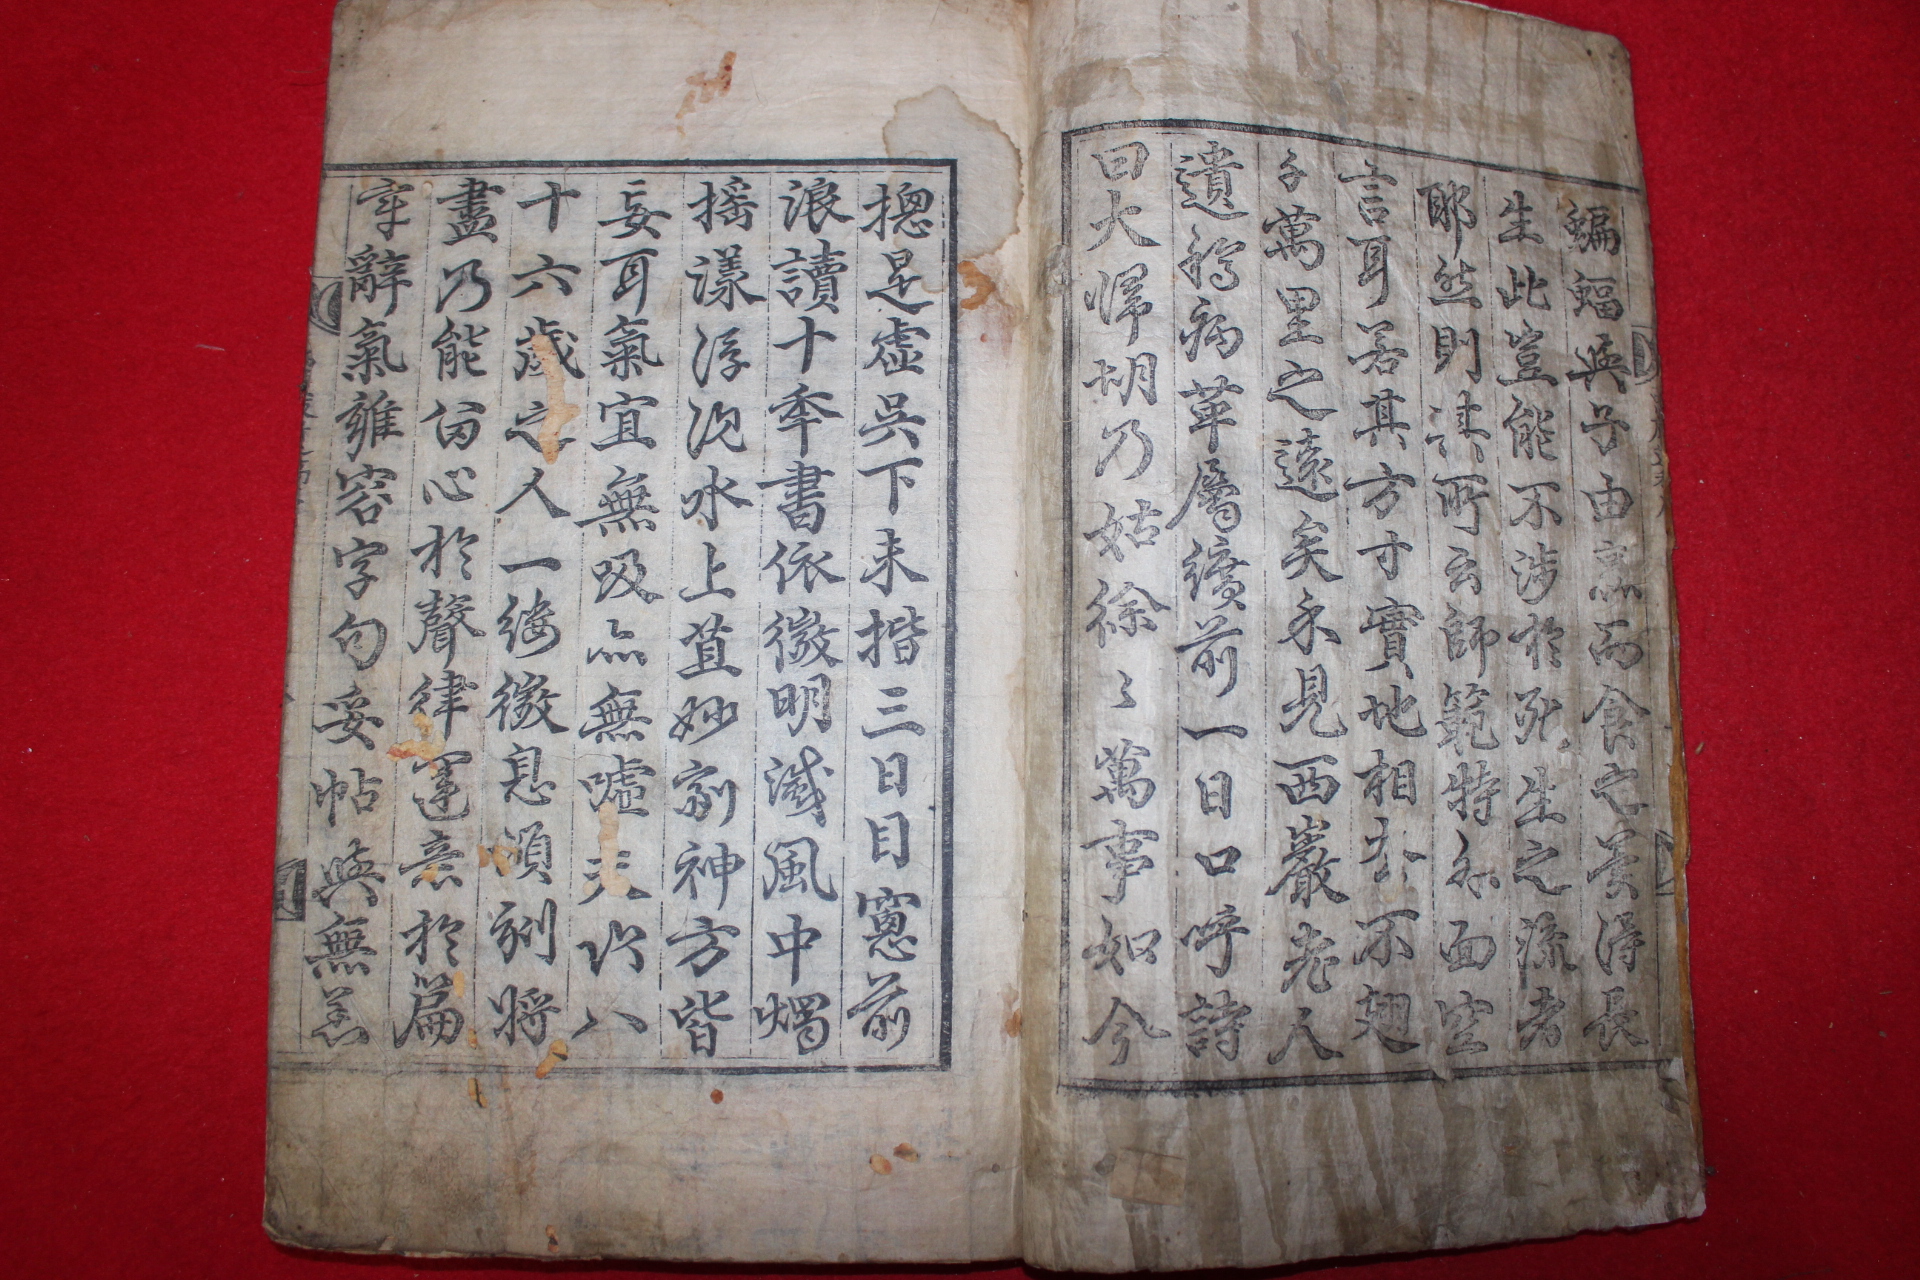 蝙蝠與子由烹而食之羹得長
生此豈能不涉於死生之流者
耶然則讃所云師範特西空
言耳若其方寸實地相去不翅
千萬里之遠矣永見西巖老人
遺稿病革屬纊前一日口呼詩
曰大歸胡乃姑徐〻萬事如今
摠是虛吳下未揩三日目窓前
浪讀十年書依微明滅風中燭
搖漾浮沉水上苴妙劑神方皆
妄耳氣宜無吸亦無噓夫以八
十六歲之人一縷微息頃刻將
盡乃能留心於聲律運意於篇
章辭氣雍容字句妥帖與無恙